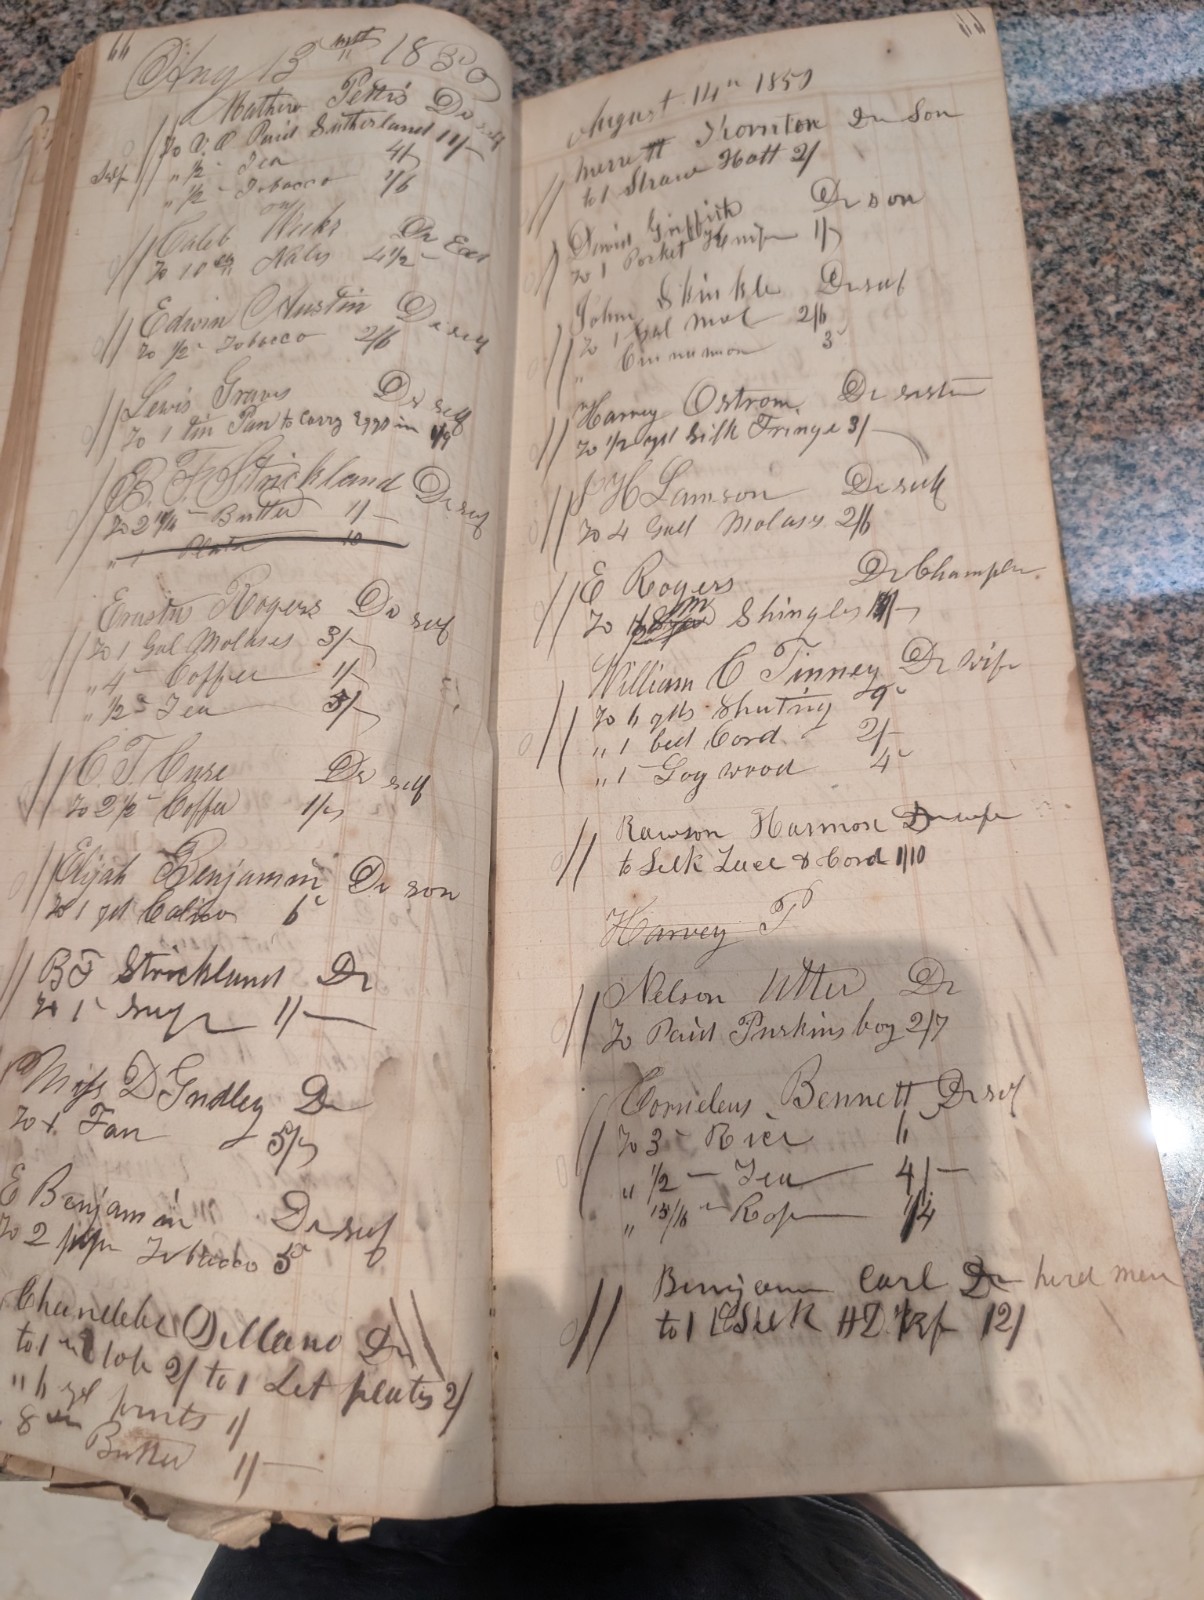 66
Aug 13th 1850
Mathew Pettis Dr self
To Paid Sutherland 11/-
" 1/2 - Tea 4/
" 1/2 - Tobacco 1/6
Caleb Weeks Dr
To 10 lb Nales 4 1/2
Edwin Austin Dr self
To 1/2 - Tobacco 2/6
Lewis Graves Dr self
To 1 tin Pan to carry Eggs in 1/9
B. F. Strickland Dr self
To 2 - Butter 1/-
" 1 Plate 10
Erastus Rogers Dr self
To 1 Gal Molases 3/-
" 4 - Coffee 1/-
" 1/2 - Tea 5/-
C T Cure Dr self
To 2 1/2 - Coffee 1/-
Elijah Benjamin Dr son
To 1 yd Calico 6
BF Strickland Dr
To 1 - 1/-
Miss D Gridley Dr
To 1 Fan 5/-
E Benjamin Dr self
To 2 Tobacco 5
Chandeler Dellano Dr
to 1 2/ to 1 Set plates 2/
" 6 yd prints 1/
8 Butter 1/-
August 14th 1850
Merrett Thornton Dr Son
to 1 Straw Hatt 2/
David Griffith Dr son
To 1 Pocket Knife 1/-
John Skinkle Dr self
To 1 Gal Mol 2/6
" Cinnamon 3
Harvey Ostrom Dr sister
To 1/2 yd Silk Fringe 3/-
H Lamson Dr self
To 4 Gall Molases 2/6
E Rogers Dr Champlin
To Shingles
William C Tinney Dr wife
To 6 yds Shuting 9
" 1 bed Cord 2/-
" 1 - Logwood 4
Rawson Harmon Dr wife
to Silk Lace & Cord 1/10
Harvey P
Nelson Utter Dr
To Paid Purkins boy 2/7
Corneleus Bennett Dr self
To 3 - Rice 6
" 1/2 - Tea 4/-
" 15/16 - Rope 1/4
Benjamn Carl Dr hired man
to 1 Silk HDkf 12/